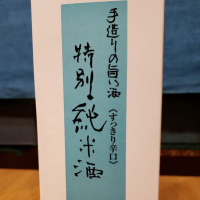 手造りの旨い酒
特別純米酒
《すっきり辛口》